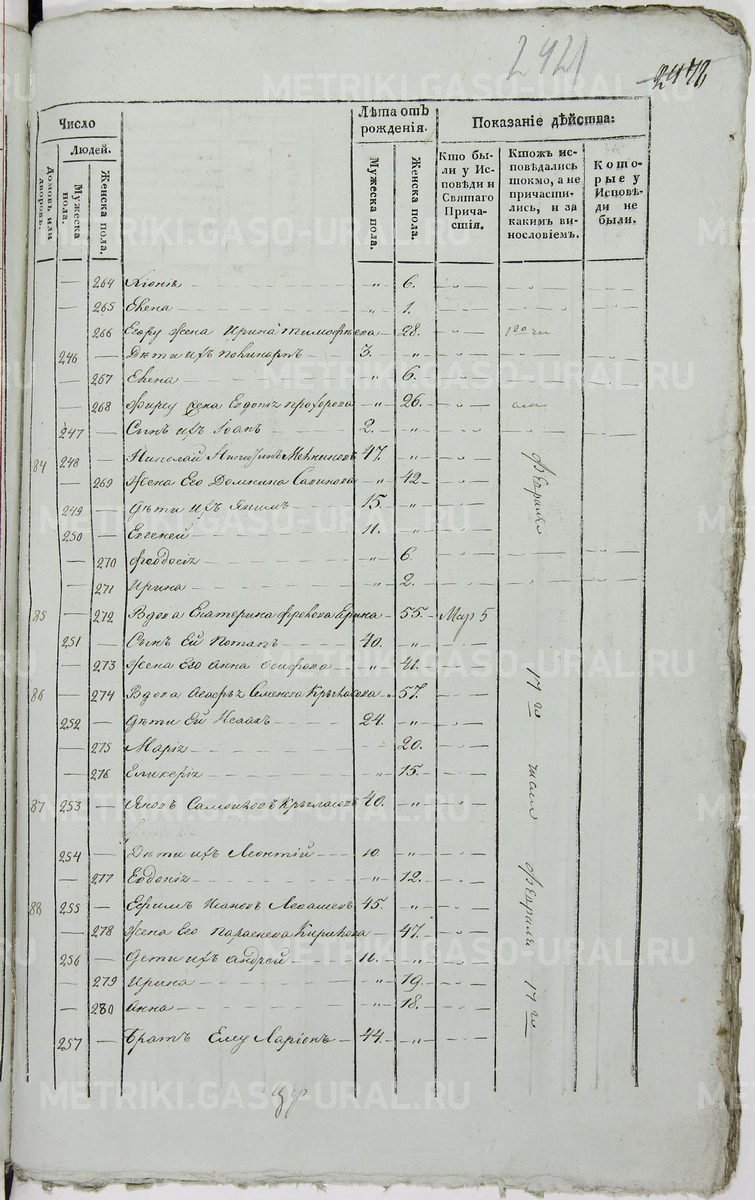 2421
2472
Число
Людей.
Домовъ или дворовъ.
Мужеска пола.
Женска пола.
Лѣта отъ рожденія.
Мужеска пола.
Женска пола.
Показаніе дѣйства:
Кто были у Исповѣди и Святаго Причастія.
Ктожъ исповѣдались токмо, а не причастились, и за какимъ винословіемъ.
Которые у Исповѣди не были.
— 264 Хіоніѧ — „ 6.
— 265 Елена — „ 1.
— 266 Егору жена Ирина Тимофѣева — „ 28.
246 — Дѣти ихъ Никаноръ — 3. „
— 267 Елена — „ 6.
— 268 Фирсу жена Евдокіѧ Прохорова — „ 26.
247 — Сынъ ихъ Іоанъ — 2. „
84 248 — Николай 47. „
— 269 Жена Его Домнина Савинова „ 42
249 — Дѣти ихъ Якимъ — 15. „
250 — Евгеней — 11. „
— 270 Феодосіѧ — „ 6
— 271 Ирина — „ 2.
85 — 272 Вдова Екатерина Фролова — 55. Мар 5
251 — Сынъ Ей Потапъ — 40. „
— 273 Жена Его Анна Осифова — „ 41.
86 — 274 Вдова Агафьѧ Семенова Крыласова „ 57.
252 — Дѣти Ей Исаакъ — 24. „
— 275 Маріѧ — 20.
— 276 Гликеріѧ — „ 15.
87 253 — Яковъ Самойловъ Крыласовъ 40. „
254 — Дѣти ихъ Леонтій — 10 „
— 277 Евдокіѧ — „ 12.
88 255 — Ефимъ Ивановъ Левашевъ 45. „
— 278 Жена Его Параскева Кирилова — 47.
256 — Дѣти ихъ Андрей — 16. „
— 279 Ирина — „ 19
— 280 Анна — „ 18.
257 — Братъ Ему Ларіонъ — 44. „
Февраля
17 го
Февраля 17 го
METRIKI.GASO-URAL.RU